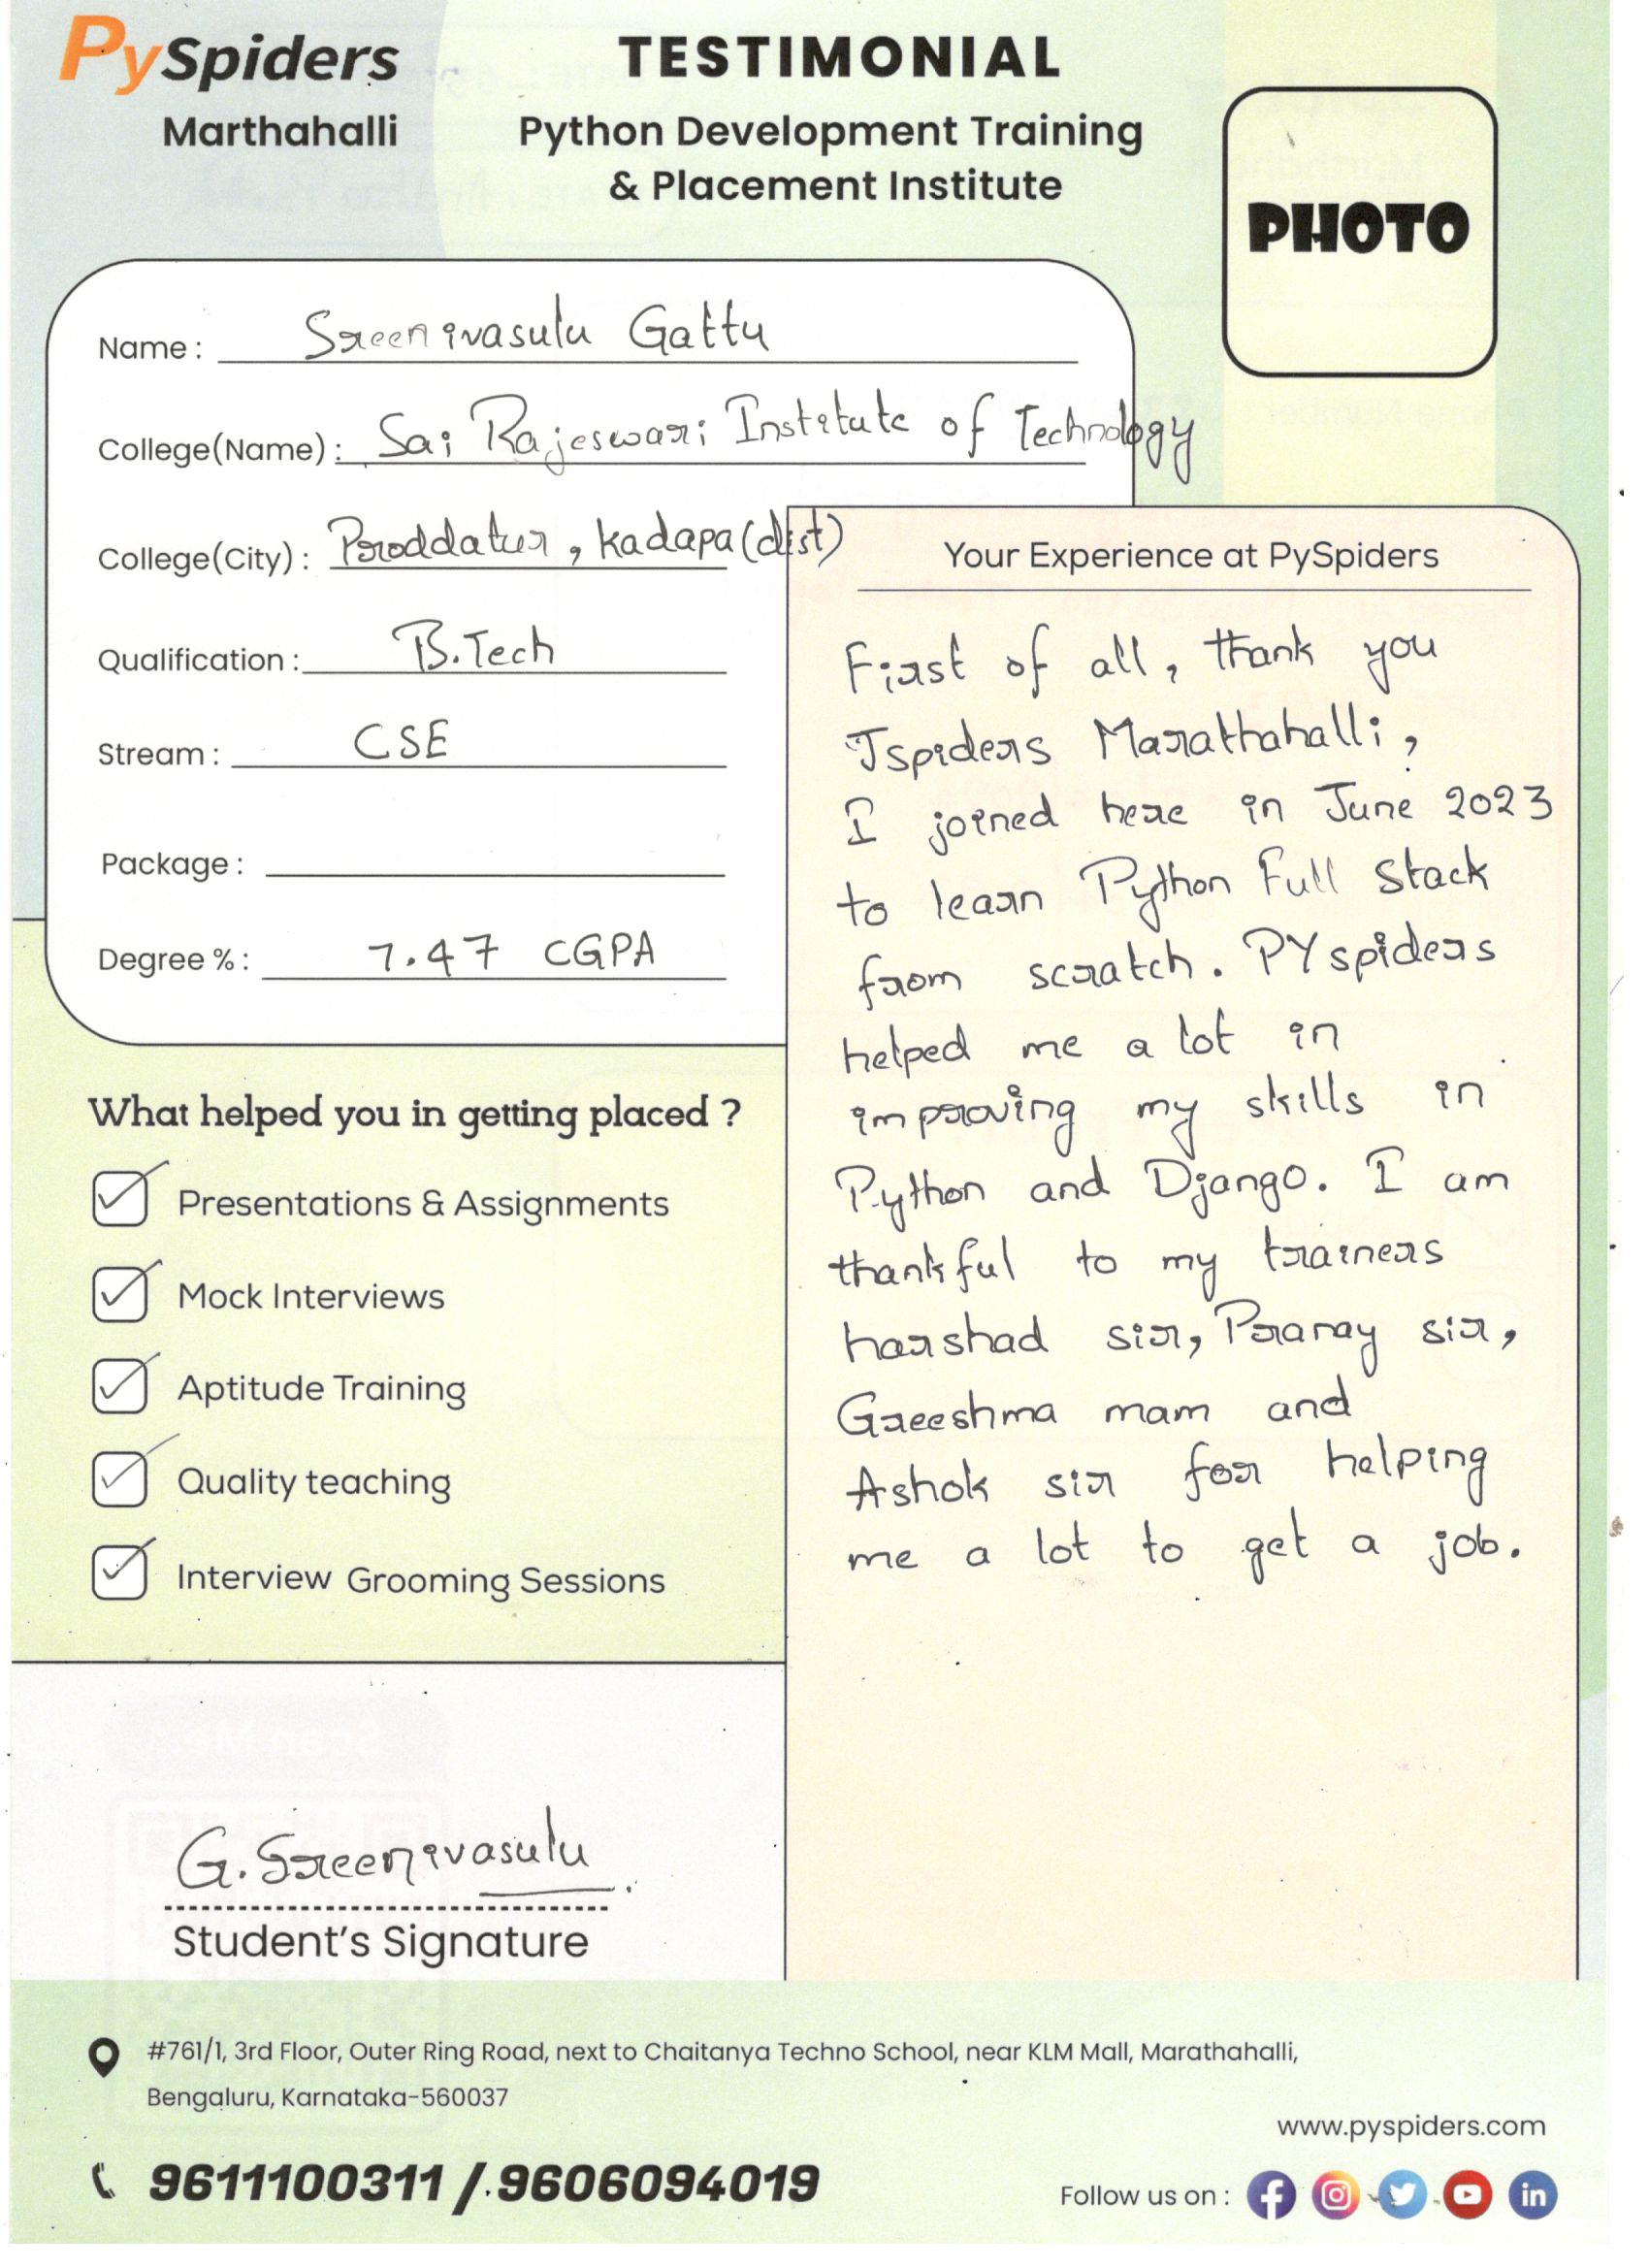 PySpiders
Marthahalli
TESTIMONIAL
Python Development Training
& Placement Institute
PHOTO
Name : Sreenivasulu Gattu
College(Name) : Sai Rajeswari Institute of Technology
College(City) : Proddatur, kadapa(dist)
Qualification : B.Tech
Stream : CSE
Package :
Degree % : 7.47 CGPA
What helped you in getting placed ?
Presentations & Assignments
Mock Interviews
Aptitude Training
Quality teaching
Interview Grooming Sessions
Your Experience at PySpiders
First of all, thank you
Jspiders Marathahalli,
I joined here in June 2023
to learn Python Full Stack
from scratch. PYspiders
helped me a lot in
improving my skills in
Python and Django. I am
thankful to my trainers
harshad sir, Pranay sir,
Greeshma mam and
Ashok sir for helping
me a lot to get a job.
G. Sreenivasulu
Student's Signature
#761/1, 3rd Floor, Outer Ring Road, next to Chaitanya Techno School, near KLM Mall, Marathahalli,
Bengaluru, Karnataka-560037
www.pyspiders.com
9611100311 / 9606094019
Follow us on :